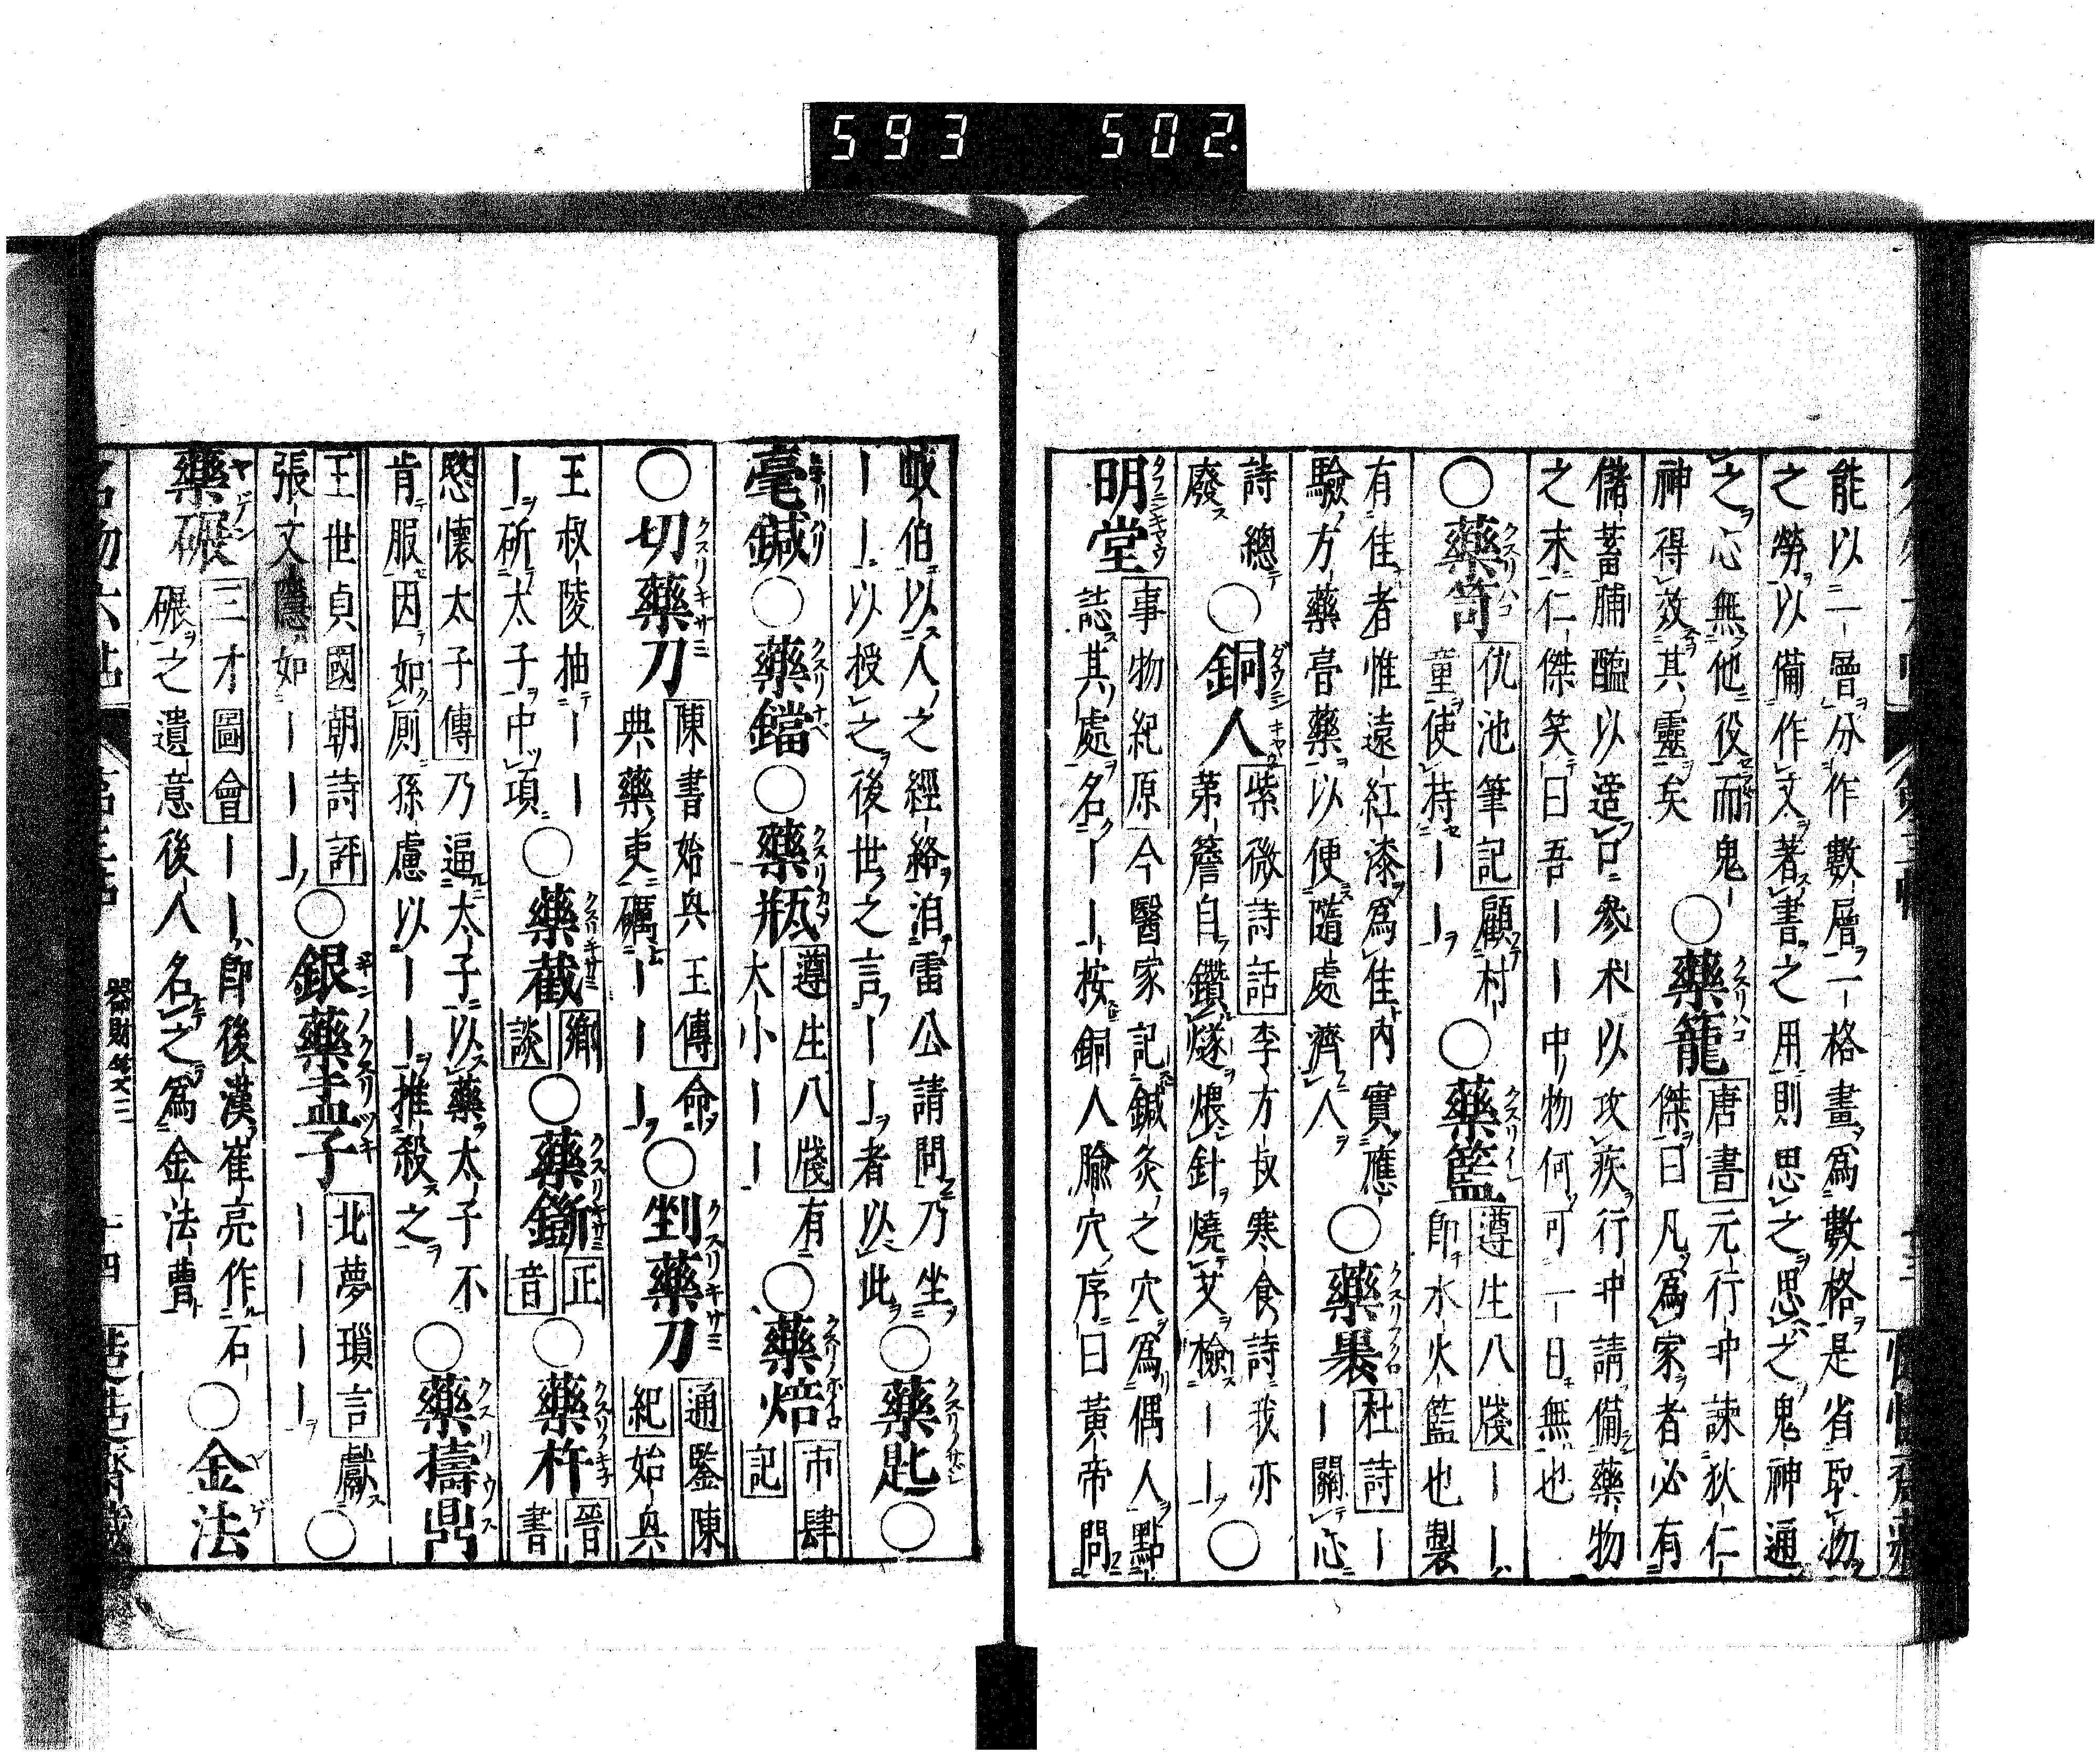 593 502.
能以一層分作數層一格畫爲數格是省取物
之勞以備作文著書之用則思之思之鬼神通
之心無他役而鬼
神得效其靈矣
○藥籠
唐書元行冲諫狄仁
傑曰凡爲家者必有
儲蓄脯醢以適口參朮以攻疾行冲請備藥物
之末仁傑笑曰吾ーー中物何可一日無也
○藥笥
仇池筆記顧村
童使持ーー
○藥籃
遵生八牋ーー
即水火籃也製
有佳者惟遠紅漆爲佳內實應
驗方藥膏藥以便隨處濟人
○藥裹
杜詩ー
ー關心
詩總
廢
○銅人
紫微詩話李方叔寒食詩我亦
第簷自鑽燧煨針燒艾檢ーー
○
明堂
事物紀原今醫家記鍼灸之穴爲偶人點
誌其處名ーー按銅人腧穴序曰黃帝問
岐伯以人之經絡洎雷公請問乃坐
ーー以授之後世之言ーー者以此
○藥匙
○
毫鍼
○藥鐺
○藥瓶
遵生八牋有
大小ーー
○藥焙
市肆
記
○切藥刀
陳書始興王傳命
典藥吏礪ーーー
○剉藥刀
通鑒陳
紀始興
王叔陵抽ーー
ー斫太子中項
○藥截
鄉
談
○藥鏩
正
音
○藥杵
晉
書
愍懷太子傳乃逼太子以藥太子不
肯服因如厠孫慮以ーー推殺之
○藥擣鼎
王世貞國朝詩評
張文隱如ーーー
○銀藥盂子
北夢瑣言獻
ーーーー
○
藥碾
三才圖會ーー即後漢崔亮作石
碾之遺意後人名之爲金法曹
○金法
器財箋三